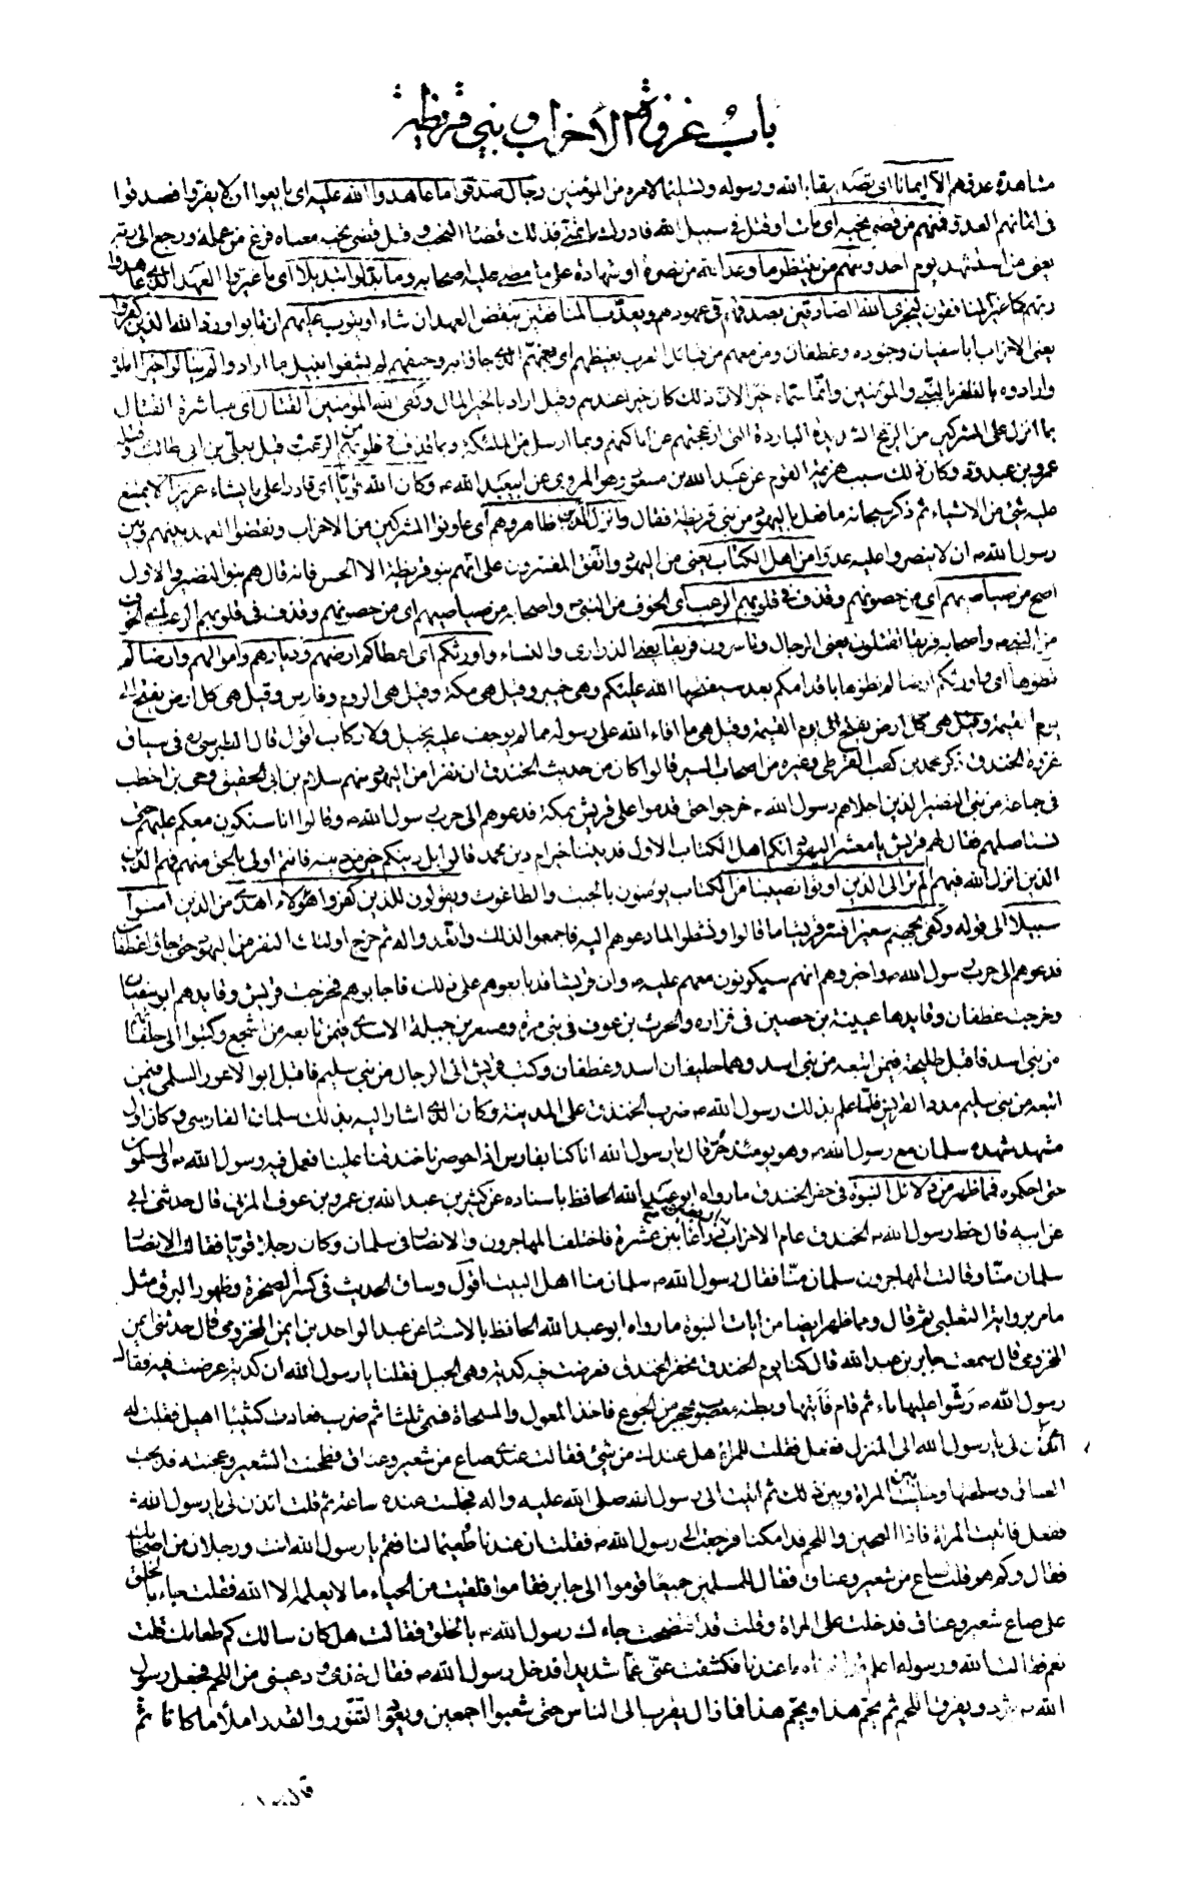 باب غزوة الأحزاب وبني قريظة
مشاهدة عدوهم الا ايمانا اى تصديقا بالله ورسوله وتسليما لامره من المؤمنين رجال صدقوا ما عاهدوا الله عليه اى بايعوا ان لا يفروا فصدقوا
فى لقائهم العدو فمنهم من قضى نحبه اى مات او قتل فى سبيل الله فادرك ما تمنى فذلك قضاء النحب وقيل قضى نحبه معناه فرغ من عمله ورجع الى ربه
يعنى من استشهد يوم احد ومنهم من ينتظر ما وعد الله من نصره او شهادة على ما مضى عليه اصحابه وما بدلوا تبديلا اى ما غيروا العهد الذى عاهدوا
ربهم كما غير المنافقون ليجزى الله الصادقين بصدقهم فى عهودهم ويعذب المنافقين بنقض العهد ان شاء او يتوب عليهم ان تابوا ورد الله الذين كفروا
يعنى الاحزاب ابا سفيان وجنوده وغطفان ومن معهم من قبائل العرب بغيظهم اى بغمهم الذى جاؤا به وحنقهم لم يشفوا بنيل ما ارادوا لم ينالوا خيرا املوه
وارادوه بالظفر بالنبى والمؤمنين وانما سماه خيرا لان ذلك كان خيرا عندهم وقيل اراد بالخير المال وكفى الله المؤمنين القتال اى مباشرة القتال
بما انزل على المشركين من الريح الشديدة الباردة التى ازعجتهم عن اماكنهم وبما ارسل من الملئكة وبما قذف فى قلوبهم من الرعب وقيل بعلى بن ابى طالب وقتله
عمرو بن عبدود وكان ذلك سبب هزيمة القوم عن عبد الله بن مسعود وهو المروى عن ابى عبد الله ع وكان الله قويا اى قادرا على ما يشاء عزيزا لا يمتنع
عليه شئ من الاشياء ثم ذكر سبحانه ما فعل باليهود من بنى قريظة فقال وانزل الذين ظاهروهم اى عاونوا المشركين من الاحزاب ونقضوا العهد بينهم وبين
رسول الله ص ان لا ينصروا عليه عدوا من اهل الكتاب يعنى من اليهود واتفق المفسرون على انهم بنو قريظة الا الحسن فانه قال هم بنو النضير والاول
اصح من صياصيهم اى من حصونهم وقذف فى قلوبهم الرعب اى الخوف من النبى ص واصحابه من صياصيهم اى من حصونهم وقذف فى قلوبهم الرعب اى الخوف
من النبى ص واصحابه فريقا تقتلون يعنى الرجال وتاسرون فريقا يعنى الذرارى والنساء واورثكم اى اعطاكم ارضهم وديارهم واموالهم وارضا لم
تطؤها اى واورثكم ارضا لم تطؤها باقدامكم بعد سيفتحها الله عليكم وهى خيبر وقيل هى مكة وقيل هى الروم وفارس وقيل هى كل ارض يفتح الى
يوم القيمة وقيل هى كل ارض يفتح الى يوم القيمة وقيل هى ما افاء الله على رسوله مما لم يوجف عليه بخيل ولا ركاب اقول قال الطبرسى ره فى سياق
غزوة الخندق ذكر محمد بن كعب القرظى وغيره من اصحاب السير قالوا كان من حديث الخندق ان نفرا من اليهود منهم سلام بن ابى الحقيق وحيى بن اخطب
فى جماعة من بنى النضير الذين اجلاهم رسول الله ص خرجوا حتى قدموا على قريش بمكة فدعوهم الى حرب رسول الله ص وقالوا انا سنكون معكم عليهم حتى
نستاصلهم فقال لهم قريش يا معشر اليهود انكم اهل الكتاب الاول فديننا خير ام دين محمد قالوا بل دينكم خير من دينه فانتم اولى بالحق منهم فهم الذين
الذين انزل الله فيهم الم تر الى الذين اوتوا نصيبا من الكتاب يؤمنون بالجبت والطاغوت ويقولون للذين كفروا هؤلاء اهدى من الذين امنوا
سبيلا الى قوله وكفى بجهنم سعيرا فسر قريشا ما قالوا ونشطوا لما دعوهم اليه فاجمعوا لذلك واتعدوا له ثم خرج اولئك النفر من اليهود حتى جاؤا غطفان
فدعوهم الى حرب رسول الله ص واخبروهم انهم سيكونون معهم عليه ص وان قريشا قد بايعوهم على ذلك فاجابوهم فخرجت قريش وقايدهم ابو سفيان
وخرجت غطفان وقايدها عيينة بن حصين فى فزاره والحرث بن عوف فى بنى مرة ومسعر بن جبيلة الاسدى فيمن تابعه من اشجع وكتبوا الى حلفائهم
من بنى اسد فاقبل طليحة فيمن اتبعه من بنى اسد وهما حليفان اسد وغطفان وكتب قريش الى الرجال من بنى سليم فاقبل ابو الاعور السلمى فيمن
اتبعه من بنى سليم مددا لقريش فلما علم بذلك رسول الله ص ضرب الخندق على المدينة وكان الذى اشار اليه بذلك سلمان الفارسى وكان اول
مشهد شهده سلمان مع رسول الله ص وهو يومئذ حر قال يا رسول الله انا كنا بفارس اذا حوصرنا خندقنا علينا فعمل فيه رسول الله ص والمسلمون
حتى احكموه فمما ظهر من دلائل النبوة فى حفر الخندق ما رواه ابو عبد الله الحافظ باسناده عن كثير بن عبد الله بن عمرو بن عوف المزنى قال حدثنى ابى
عن ابيه قال خط رسول الله ص الخندق عام الاحزاب اربعين ذراعا بين عشرة فاختلف المهاجرون والانصار فى سلمان وكان رجلا قويا فقالت الانصار
سلمان منا وقالت المهاجرون سلمان منا فقال رسول الله ص سلمان منا اهل البيت اقول وساق الحديث فى كسر الصخرة وظهور البرق مثل
ما مر برواية الثعلبى ثم قال ومما ظهر ايضا من ايات النبوة ما رواه ابو عبد الله الحافظ بالاسناد عن عبد الواحد بن ايمن المخزومى قال حدثنى ايمن
المخزومى قال سمعت جابر بن عبد الله قال كنا يوم الخندق نحفر الخندق فعرضت فيه كدية وهى الجبل فقلنا يا رسول الله ان كدية عرضت فيه فقال
رسول الله ص رشوا عليها ماء ثم قام فاتيها وبطنه معصوب بحجر من الجوع فاخذ المعول والمسحاة فسمى ثلثا ثم ضرب فعادت كثيبا اهيل فقلت له
ائذن لى يا رسول الله الى المنزل ففعل فقلت للمراة هل عندك من شئ فقالت عندى صاع من شعير وعناق فطحنت الشعير وعجنته وذبحت
العناق وسلختها وخليت بين المراة وبين ذلك ثم اتيت الى رسول الله صلى الله عليه واله فجلست عنده ساعة ثم قلت ائذن لى يا رسول الله ص
ففعل فاتيت المراة فاذا العجين واللحم قد امكنا فرجعت الى رسول الله ص فقلت ان عندنا طعيما لنا فقم يا رسول الله انت ورجلان من اصحابك
فقال وكم هو قلت صاع من شعير وعناق فقال للمسلمين جميعا قوموا الى جابر فقاموا فلقيت من الحياء ما لا يعلمه الا الله فقلت جاء بالخلق
على صاع شعير وعناق فدخلت على المراة وقلت قد افتضحت جاءك رسول الله ص بالخلق فقالت هل كان سالك كم طعامك قلت
نعم فقالت الله ورسوله اعلم ما عندنا فكشفت عنى غما شديدا فدخل رسول الله ص فقال خذى ودعينى من اللحم فجعل رسول
الله ص يثرد ويفرق اللحم ثم يجم هذا ويجم هذا فما زال يقرب الى الناس حتى شبعوا اجمعين ويعود التنور والقدر املا ما كانا ثم